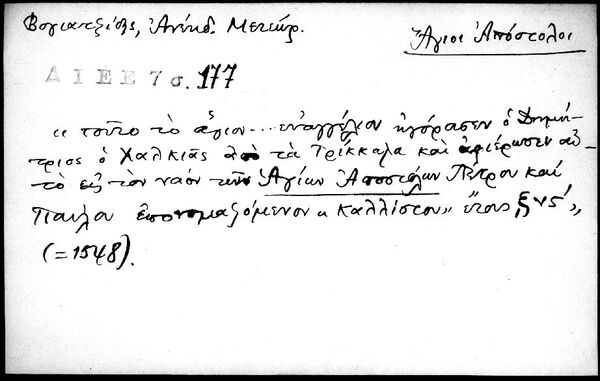 Βογιατζίδης, Ἀνέκδ. Μετεώρ.
Ἅγιοι Ἀπόστολοι
ΔΙΕΕ 7 σ. 177
« τοῦτο τὸ ἅγιον... εὐαγγέλιον ἠγόρασεν ὁ Δημή-
τριος ὁ Χαλκιᾶς ἀπὸ τὰ Τρίκκαλα καὶ ἀφιέρωσεν αὐ-
τὸ εἰς τὸν ναὸν τῶν Ἁγίων Ἀποστόλων Πέτρου καὶ
Παύλου ἐπονομαζόμενον « Καλλίστου» ἔτους ζνϛ´»
(=1548).